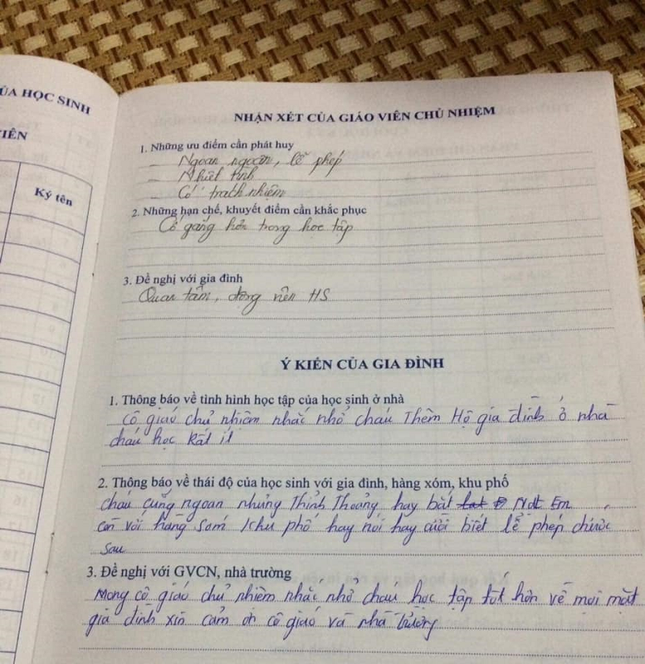 ỦA HỌC SINH
IÊN
Ký tên
NHẬN XÉT CỦA GIÁO VIÊN CHỦ NHIỆM
1. Những ưu điểm cần phát huy
Ngoan ngoãn, lễ phép
Nhiệt tình
Có trách nhiệm
2. Những hạn chế, khuyết điểm cần khắc phục
Cố gắng hơn trong học tập
3. Đề nghị với gia đình
Quan tâm, động viên HS
Ý KIẾN CỦA GIA ĐÌNH
1. Thông báo về tình hình học tập của học sinh ở nhà
Cô giáo chủ nhiệm nhắc nhở cháu Thêm Hộ gia đình ở nhà
cháu học Rất ít
2. Thông báo về thái độ của học sinh với gia đình, hàng xóm, khu phố
cháu cũng ngoan nhưng Thỉnh Thoảng hay bắt Nạt Em
còn với hàng sóm khu phố hay nói hay cười biết lễ phép
sau
3. Đề nghị với GVCN, nhà trường
Mong cô giáo chủ nhiệm nhắc nhở cháu học tập tốt hơn về mọi mặt
gia đình xin cảm ơn cô giáo và nhà trường